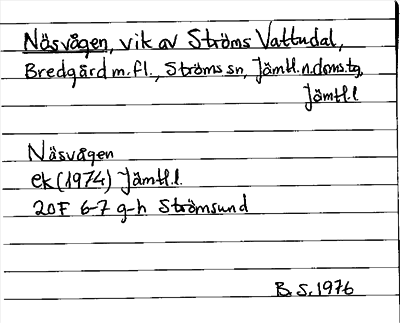 Näsvågen, vik av Ströms Vattudal,
Bredgård m.fl., Ströms sn, Jämtl.n.doms.tg,
Jämtl.l
Näsvågen
ek (1974) Jämtl.l.
20F 6-7 g-h Strömsund
B.S. 1976